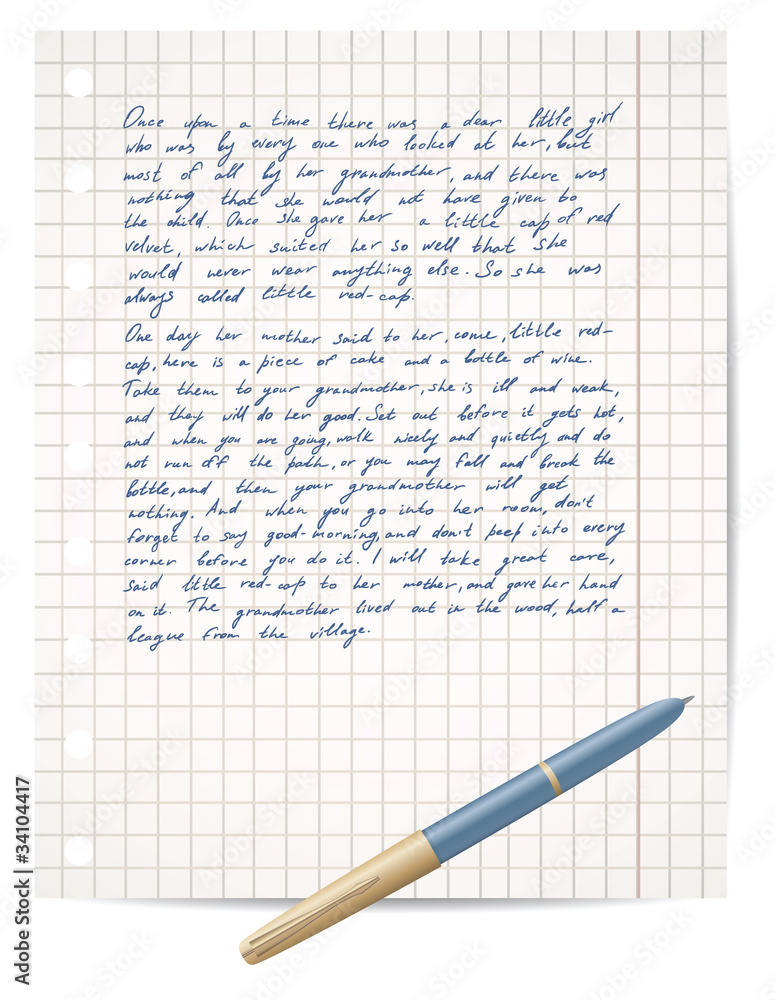 Once upon a time there was a dear little girl
who was by every one who looked at her, but
most of all by her grandmother, and there was
nothing that she would not have given to
the child. Once she gave her a little cap of red
velvet, which suited her so well that she
would never wear anything else. So she was
always called little red-cap.
One day her mother said to her, come, little red-
cap, here is a piece of cake and a bottle of wine.
Take them to your grandmother, she is ill and weak,
and they will do her good. Set out before it gets hot,
and when you are going, walk nicely and quietly and do
not run off the path, or you may fall and break the
bottle, and then your grandmother will get
nothing. And when you go into her room, don't
forget to say good-morning, and don't peep into every
corner before you do it. I will take great care,
said little red-cap to her mother, and gave her hand
on it. The grandmother lived out in the wood, half a
league from the village.
Adobe Stock | #34104417